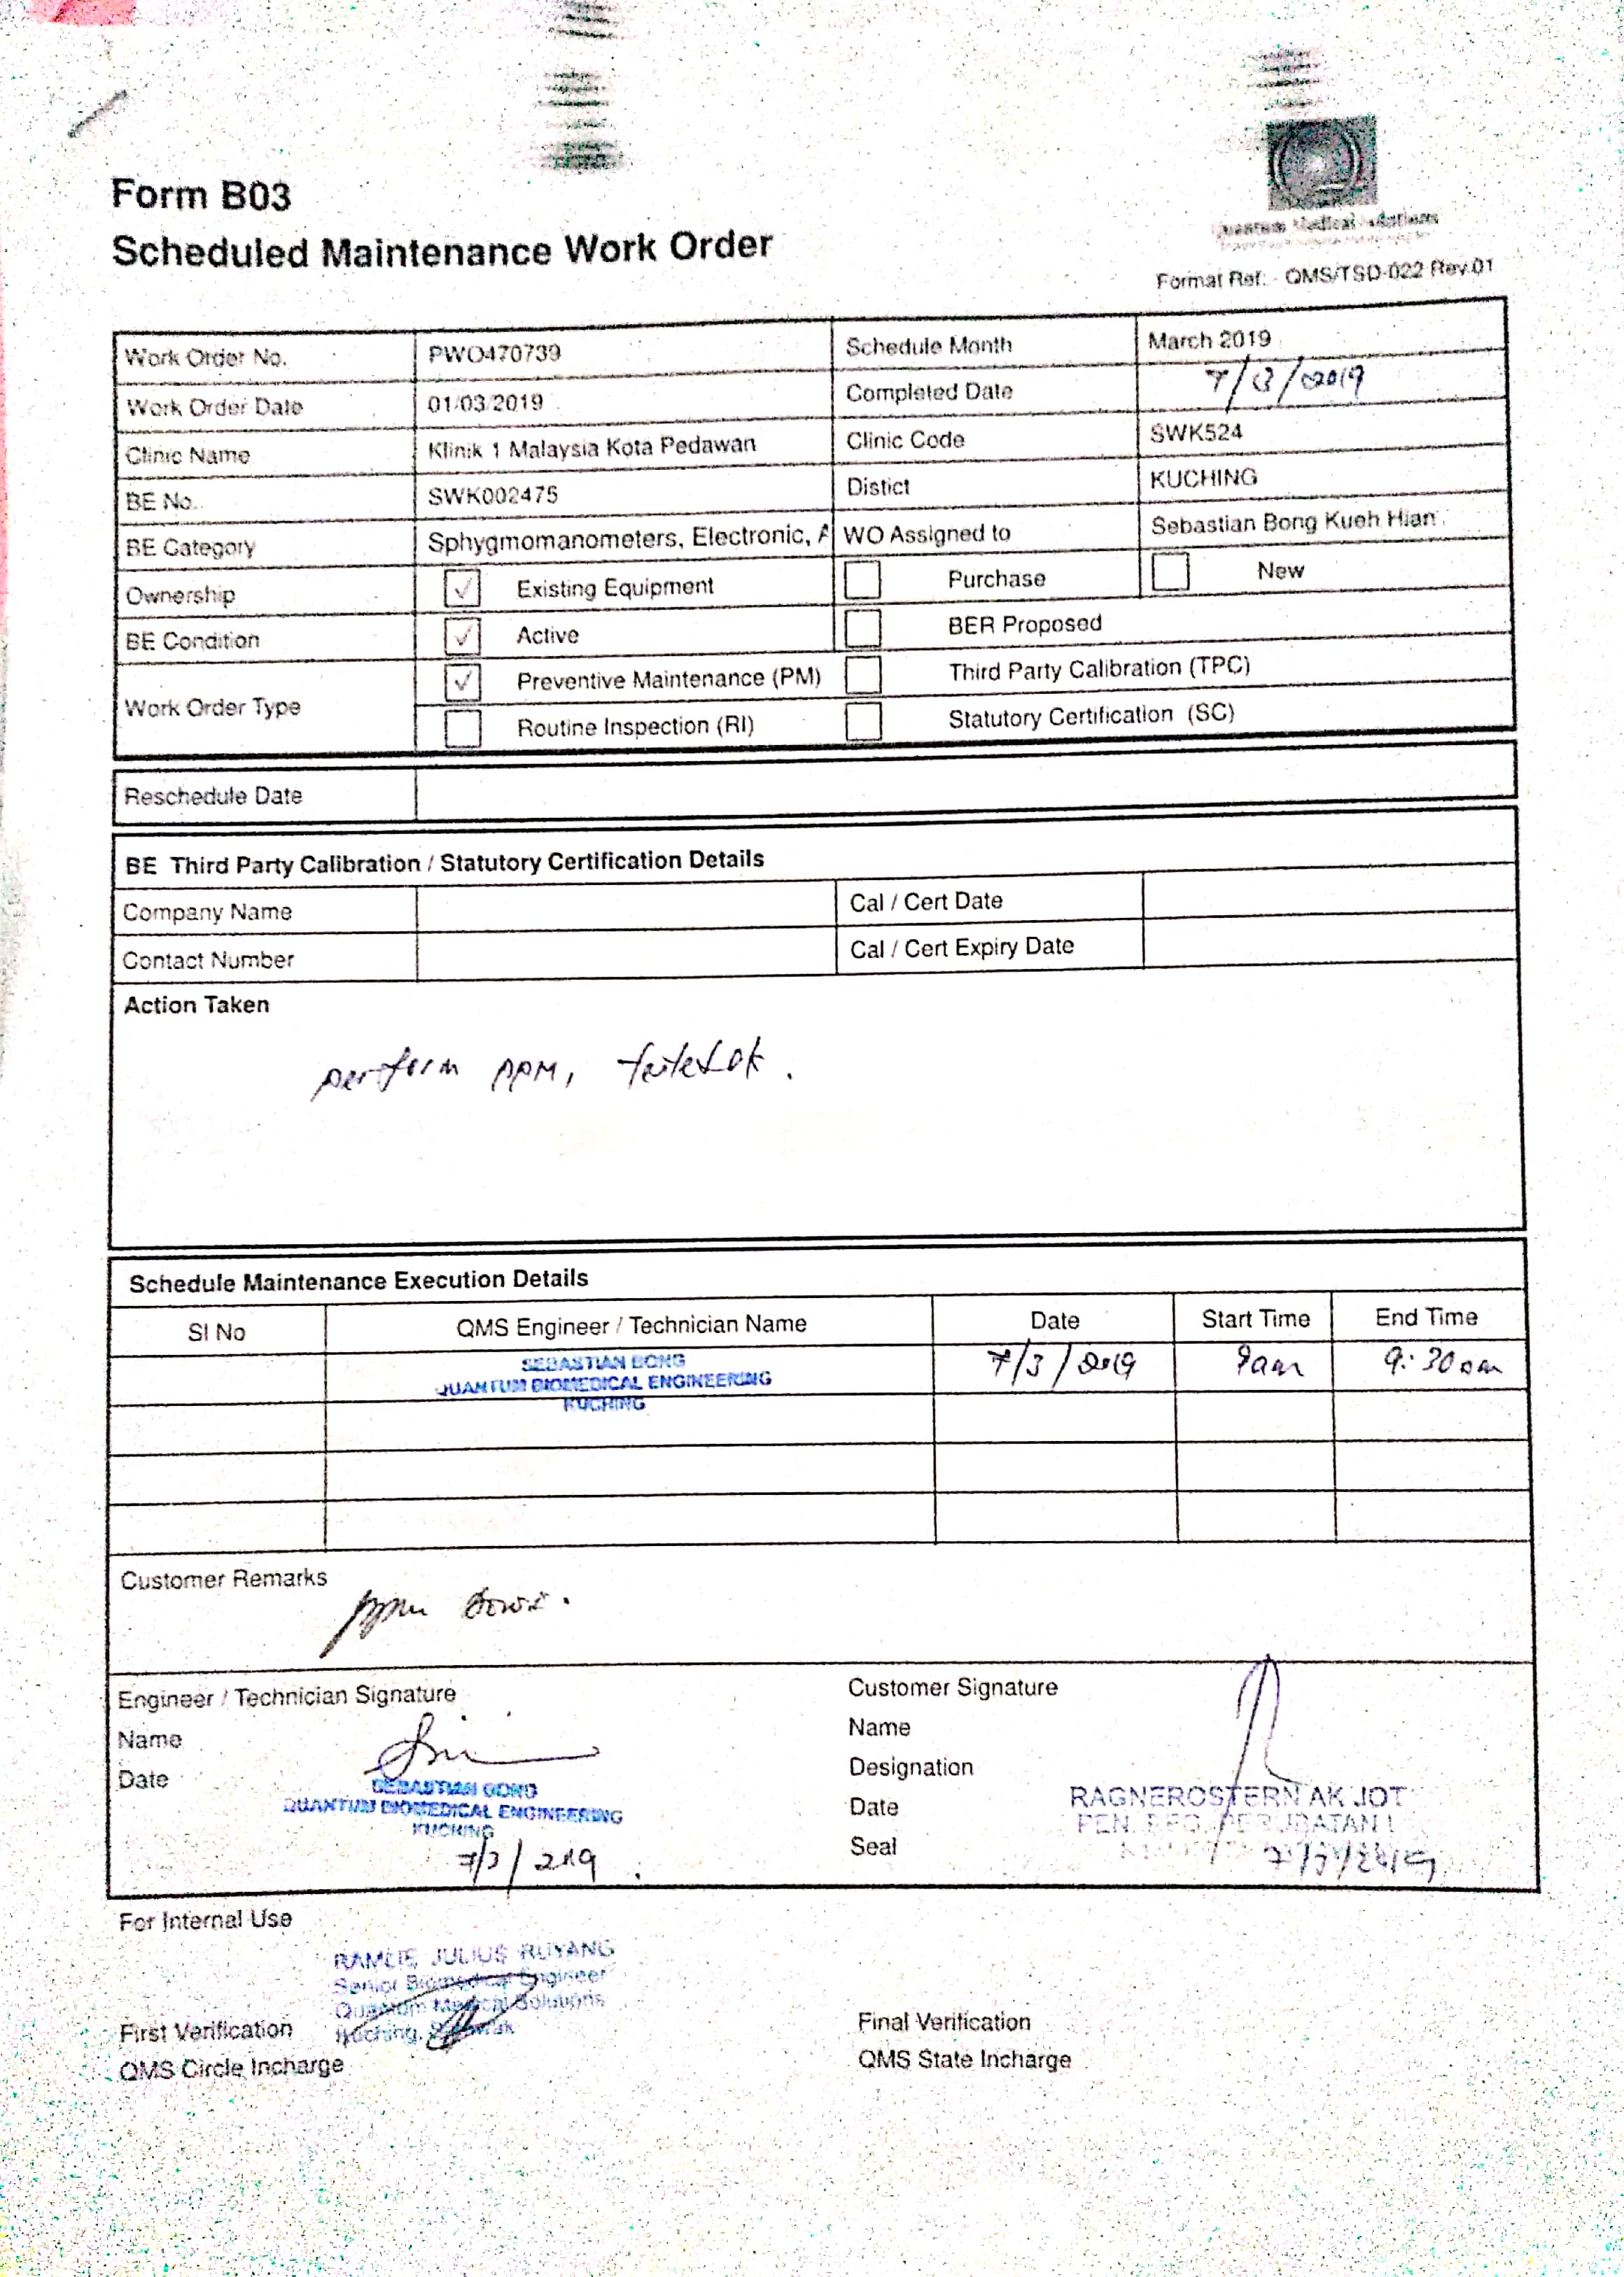 Form B03
Scheduled Maintenance Work Order
Quantum Medical Solutions
Format Ref: - QMS/TSD-022 Rev.01
Work Order No. PWO470739 Schedule Month March 2019
Work Order Date 01/03/2019 Completed Date 7/3/2019
Clinic Name Klinik 1 Malaysia Kota Pedawan Clinic Code SWK524
BE No. SWK002475 Distict KUCHING
BE Category Sphygmomanometers, Electronic, A WO Assigned to Sebastian Bong Kueh Hian
Ownership ✓ Existing Equipment Purchase New
BE Condition ✓ Active BER Proposed
Work Order Type ✓ Preventive Maintenance (PM) Third Party Calibration (TPC)
Routine Inspection (RI) Statutory Certification (SC)
Reschedule Date
BE Third Party Calibration / Statutory Certification Details
Company Name Cal / Cert Date
Contact Number Cal / Cert Expiry Date
Action Taken
perform PPM, tested ok.
Schedule Maintenance Execution Details
SI No QMS Engineer / Technician Name Date Start Time End Time
SEBASTIAN BONG 7/3/2019 9am 9:30am
QUANTUM BIOMEDICAL ENGINEERING
KUCHING
Customer Remarks
ppm done.
Engineer / Technician Signature
Name
Date
SEBASTIAN BONG
QUANTUM BIOMEDICAL ENGINEERING
KUCHING
7/3/2019
Customer Signature
Name
Designation
Date
Seal
RAGNEROSTERN AK JOT
PEN. PEG. PERUBATAN
7/3/2019
For Internal Use
RAMLIE JULIUS RUYANG
Senior Biomedical Engineer
Quantum Medical Solutions
Kuching, Sarawak
First Verification
QMS Circle Incharge
Final Verification
QMS State Incharge